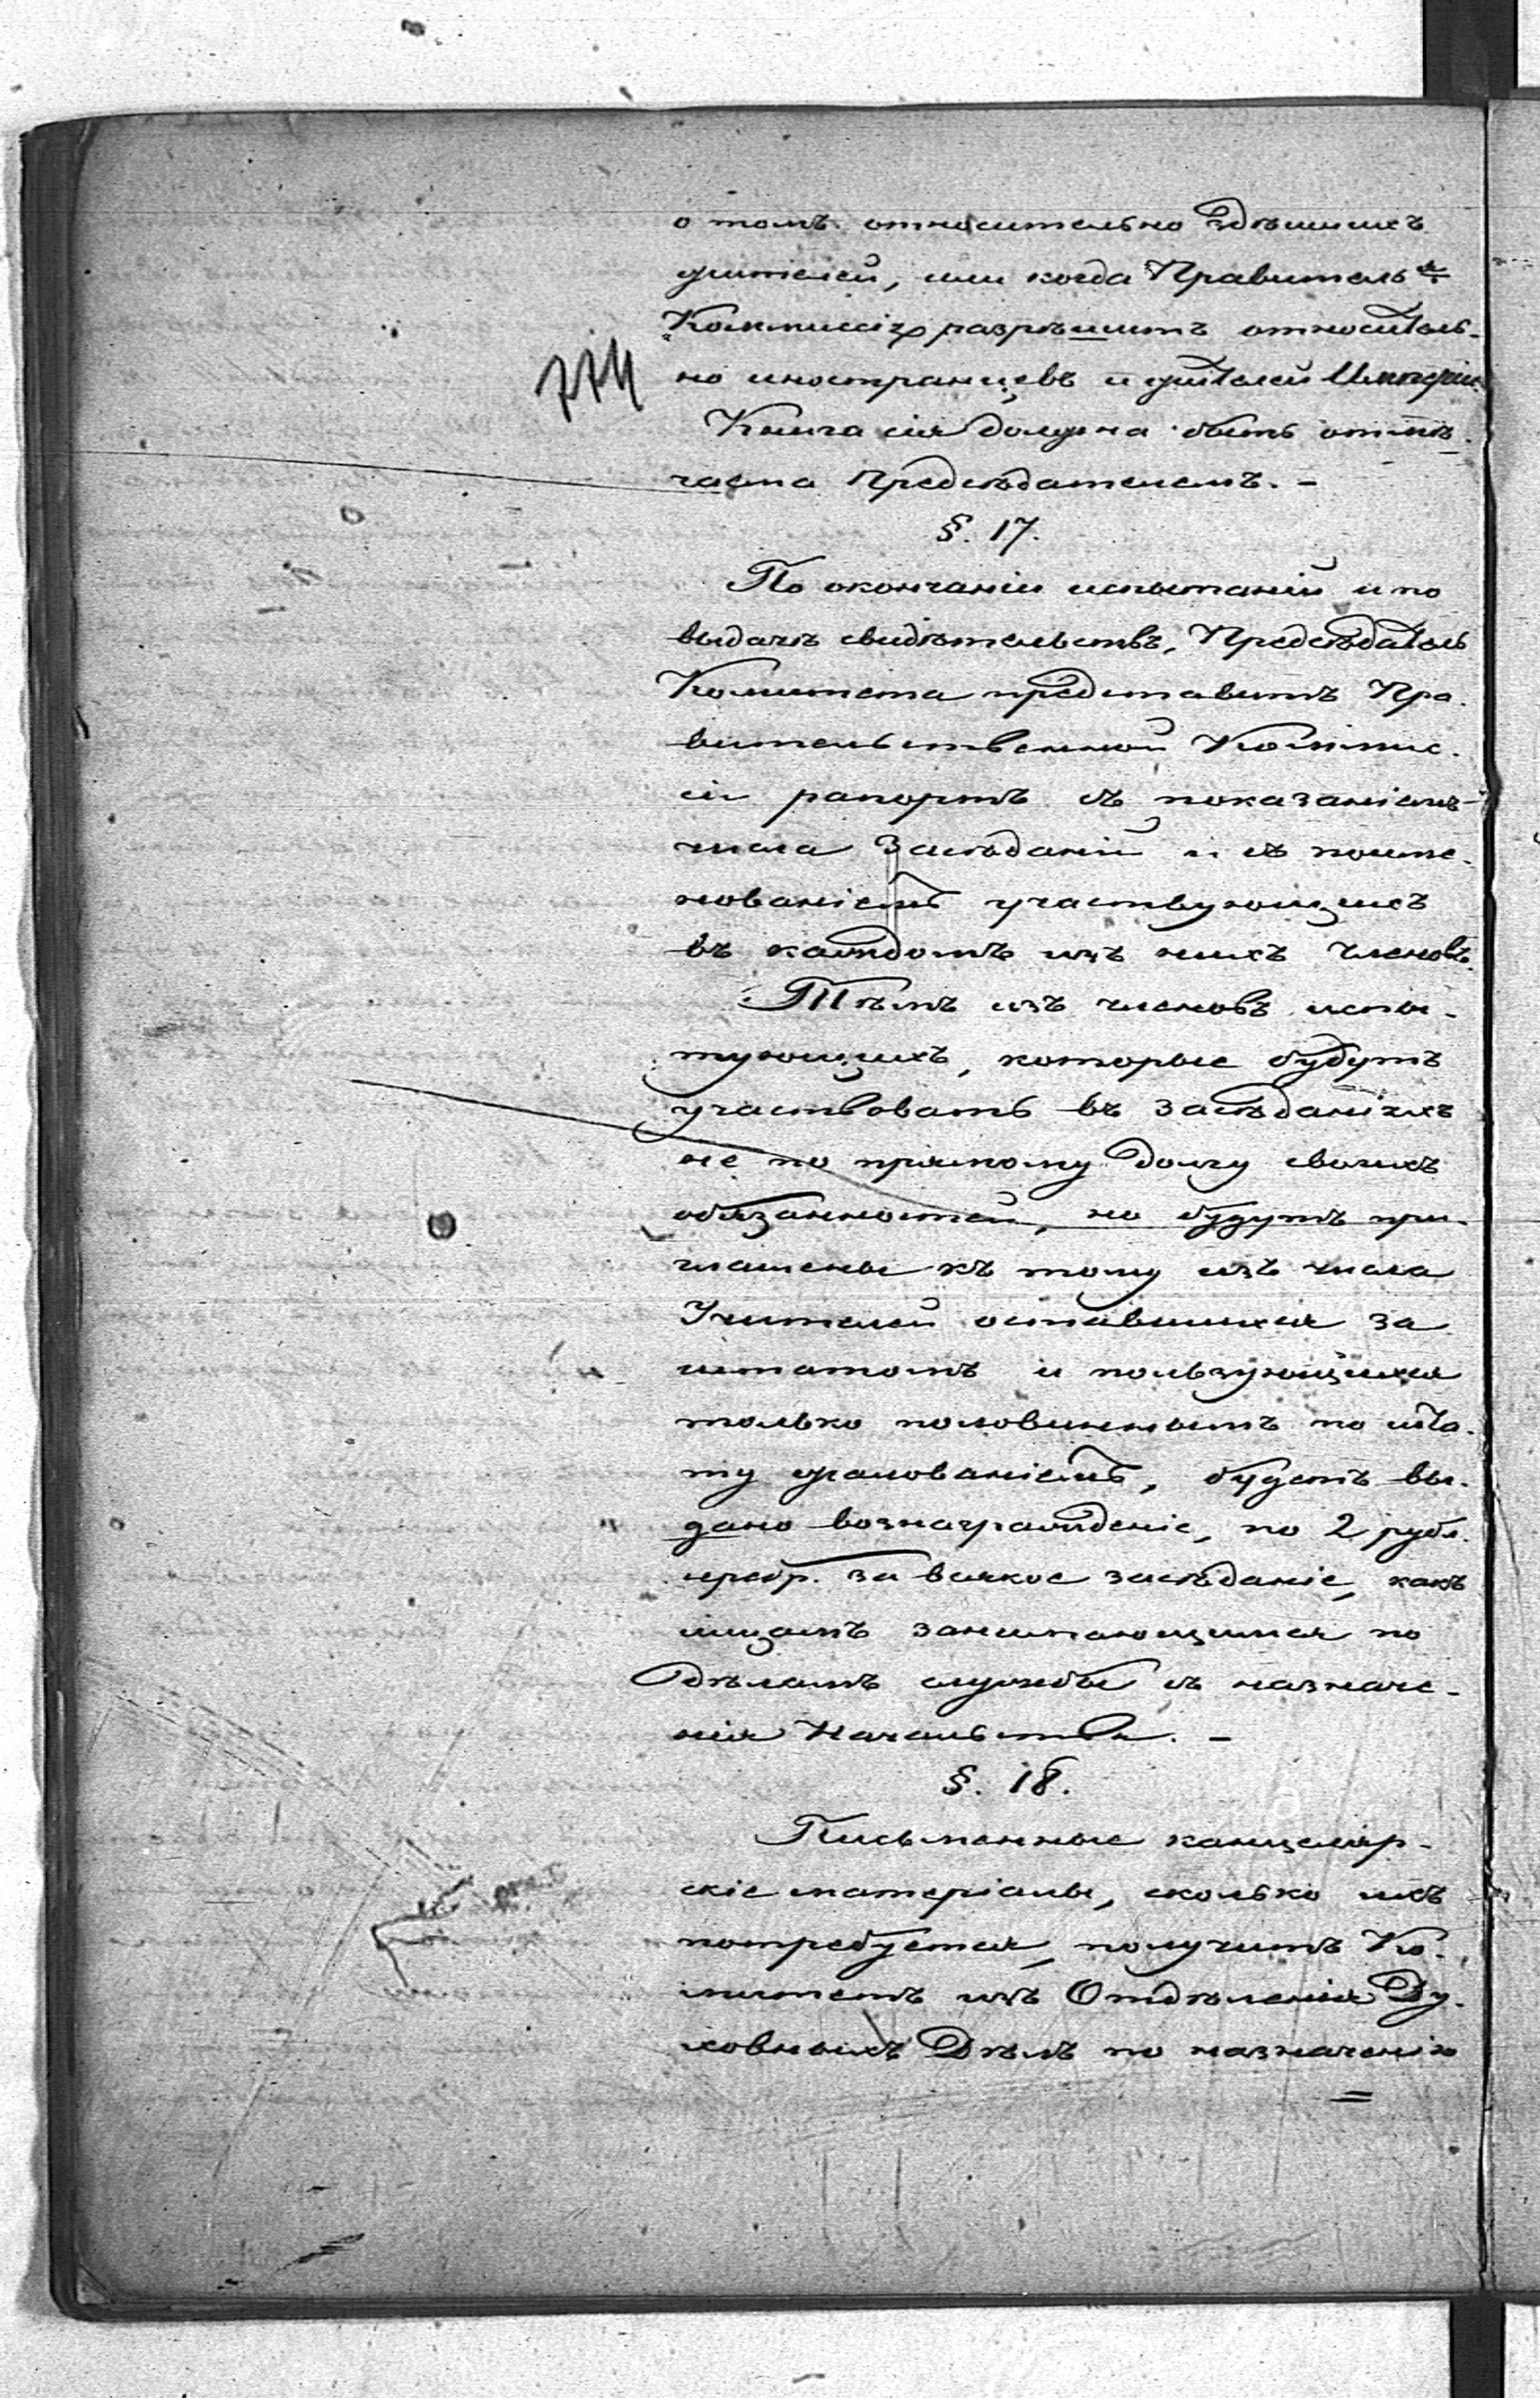 о томъ относительно здѣшнихъ
жителей, или когда Правитель.
Коммиссія разрѣшитъ относитель-
774
но иностранцевъ и жителей Имперіи.
Книга сія должна быть отмѣ-
чаема Предсѣдателемъ. -
§. 17.
По окончаніи испытаній и по
выдачѣ свидѣтельствъ, Предсѣдатель
Комитета представитъ Пра-
вительственной Коммис-
сіи рапортъ съ показаніемъ
числа Засѣданій и съ поиме-
нованіемъ участвующихъ
въ каждомъ изъ нихъ членовъ.
Тѣмъ изъ членовъ испы-
тующихъ, которые будутъ
участвовать въ засѣданіяхъ
не по прямому долгу своихъ
обязанностей, но будутъ при-
глашены къ тому изъ числа
Учителей оставшихся за
штатомъ и пользующихся
только половиннымъ по шта-
ту жалованіемъ, будетъ вы-
дано вознагражденіе, по 2 рубл.
серебр. за всякое засѣданіе, какъ
лицамъ занимающимся по
дѣламъ службы съ назначе-
нія Начальства. -
§. 18.
Письменные канцеляр-
скіе матеріалы, сколько ихъ
потребуется, получитъ Ко-
митетъ изъ Отдѣленія Ду-
ховныхъ Дѣлъ по назначенію
=